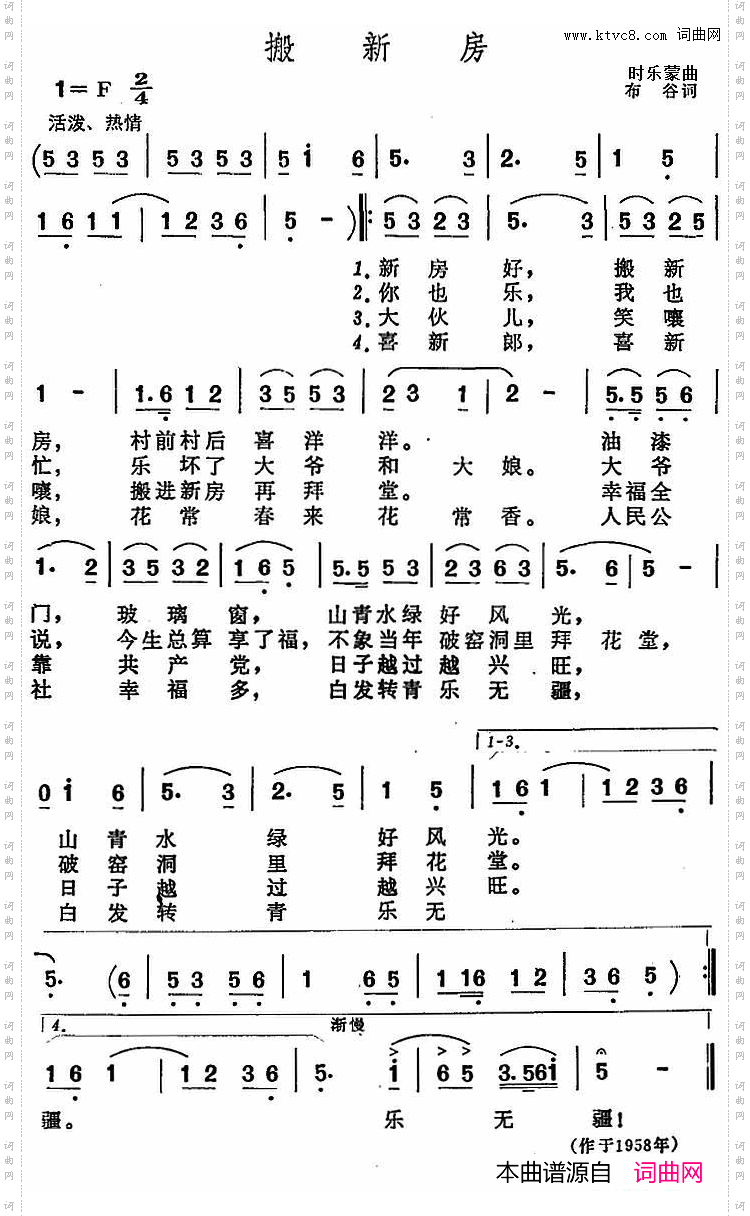 搬新房
www.ktvc8.com 词曲网
1=F 2/4
时乐蒙曲
布谷词
活泼、热情
(5 3 5 3 | 5 3 5 3 | 5 i 6 | 5. 3 | 2. 5 | 1 5
1 6 1 1 | 1 2 3 6 | 5 - ) |: 5 3 2 3 | 5. 3 | 5 3 2 5
1.新房好， 搬新
2.你也乐， 我也
3.大伙儿， 笑嚷
4.喜新郎， 喜新
1 - | 1.6 1 2 | 3 5 5 3 | 2 3 1 | 2 - | 5.5 5 6
房， 村前村后喜洋洋。 油漆
忙， 乐坏了大爷和大娘。 大爷
嚷， 搬进新房再拜堂。 幸福全
娘， 花常春来花常香。 人民公
1. 2 | 3 5 3 2 | 1 6 5 | 5.5 5 3 | 2 3 6 3 | 5. 6 | 5 -
门， 玻璃窗， 山青水绿好风光，
说， 今生总算享了福， 不象当年破窑洞里拜花堂，
靠共产党， 日子越过越兴旺，
社幸福多， 白发转青乐无疆，
0 i 6 | 5. 3 | 2. 5 | 1 5 | 1-3. 1 6 1 | 1 2 3 6
山青水绿好风光。
破窑洞里拜花堂。
日子越过越兴旺。
白发转青乐无
5. (6 | 5 3 5 6 | 1 6 5 | 1 16 1 2 | 3 6 5 ) :|
4. 渐慢
1 6 1 | 1 2 3 6 | 5. i | i 6 5 | 3.561 | 5 - |
疆。 乐无疆！
(作于1958年)
本曲谱源自 词曲网
词曲网